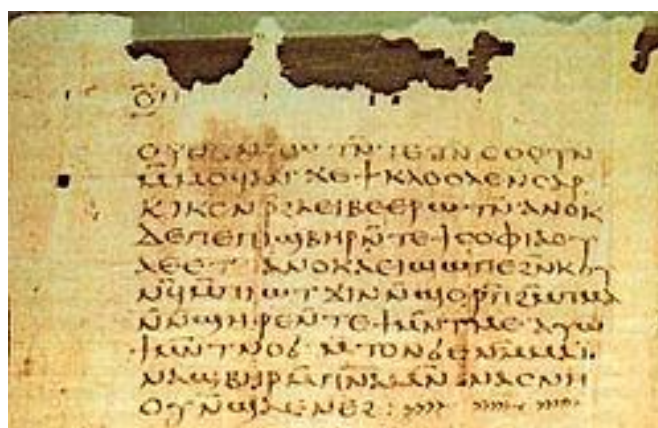 ⲟ̅
ⲟⲩⲉϩ ⲧⲉⲧⲛ̄ⲥⲟⲟⲩⲛ
ⲙ̄ⲙⲟϥ ⲁⲛ ϫⲉ ϯⲕⲗⲟⲟⲗⲉ ⲛ̄ⲥⲁⲣ
ⲕⲓⲕⲟⲛ ⲣ̄ϩⲁⲉⲓⲃⲉⲥ ⲉⲣⲱⲧⲛ̄· ⲁⲛⲟⲕ
ⲇⲉ ⲡⲉ ⲡⲓϣⲃⲏⲣ ⲛ̄ⲧⲉ ϯⲥⲟⲫⲓⲁ ⲟⲩ
ⲁⲉⲉⲧ· ⲁⲛⲟⲕ ⲁⲉⲓϣⲱⲡⲉ ϩⲛ̄ ⲕⲟⲩ
ⲛ̄ϥ ⲙ̄ⲡⲓⲱⲧ ϫⲓⲛ ⲛ̄ϣⲟⲣⲡ̄ ϩⲙ̄ ⲡⲙⲁ
ⲛ̄ⲛ̄ϣⲏⲣⲉ ⲛ̄ⲧⲉ ϯⲙⲛ̄ⲧⲙⲉ ⲁⲩⲱ
ϯⲙⲛ̄ⲧⲛⲟϭ· ⲙ̄ⲧⲟⲛ ϭⲉ ⲛⲙ̄ⲙⲁⲓ̈·
ⲛⲁϣⲃⲏⲣⲙ̄ⲡⲛ̅ⲁ̅ ⲙⲛ̄ ⲛⲁⲥⲛⲏ
ⲟⲩ ⲛ̄ϣⲁⲉⲛⲉϩ: